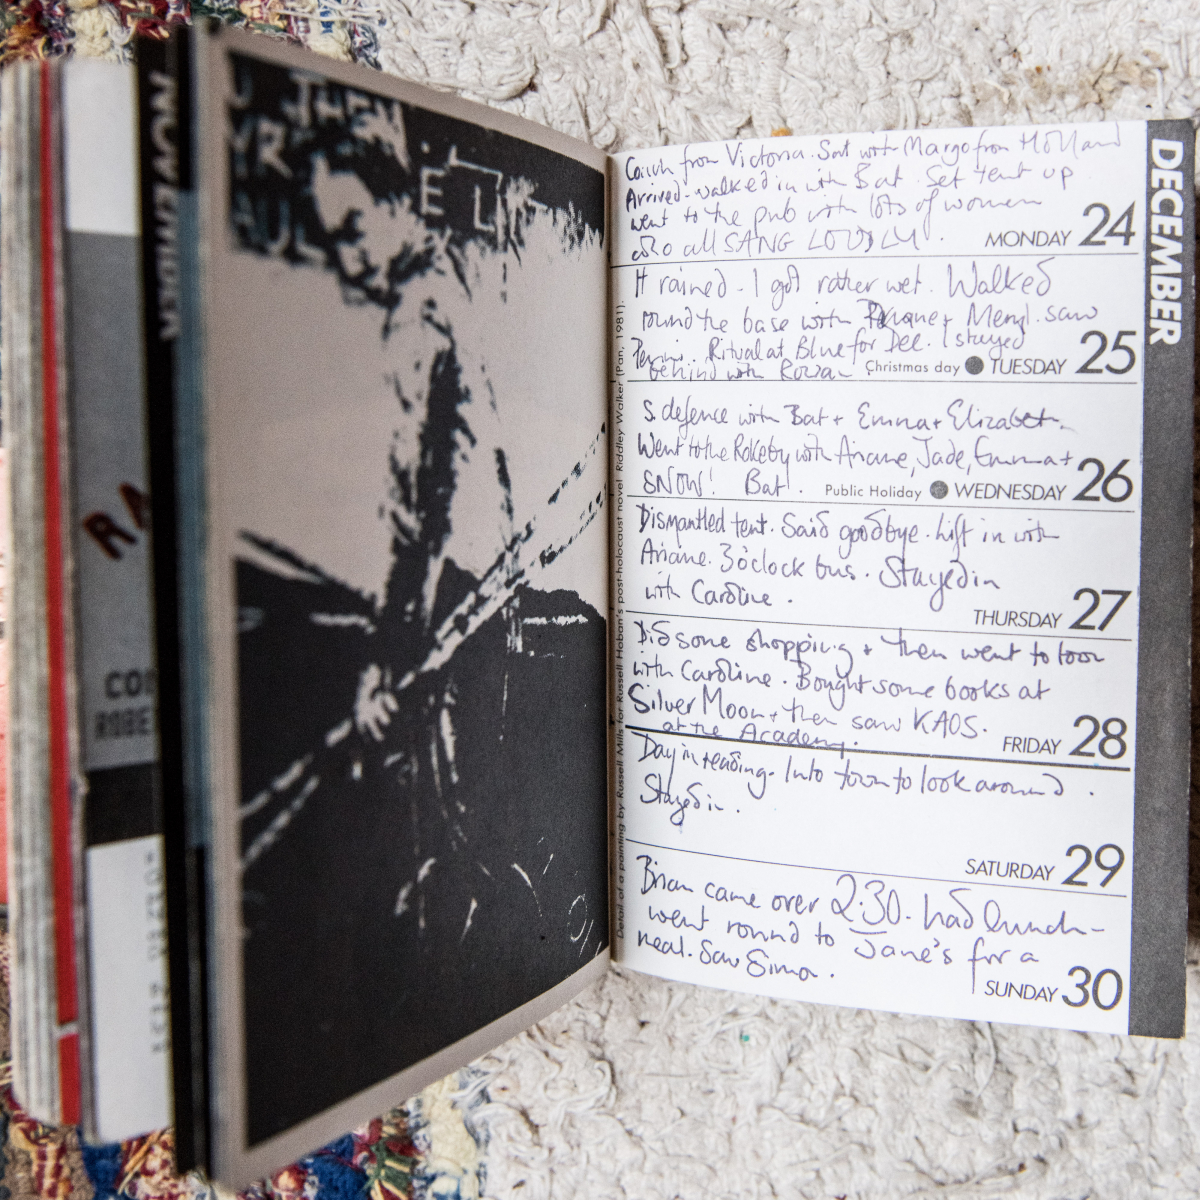 NOVEMBER
RA
COD
ROBE
U THEM
YR
E LIT
AUL
Detail of a painting by Russell Mills for Russell Hoban's post-holocaust novel Riddley Walker (Pan, 1981).
DECEMBER
Coach from Victoria. Sat with Margo from Holland
Arrived - walked in with Bat. Set tent up
went to the pub with lots of women
who all SANG LOUDLY.
MONDAY 24
It rained - I got rather wet. Walked
round the base with + Meryl. saw
Ritual at Blue for Dee. I stayed
behind with Rowan
Christmas day TUESDAY 25
S. defence with Bat + Emma + Elizabeth.
Went to the Rokeby with Ariane, Jade, Emma +
SNOW! Bat.
Public Holiday WEDNESDAY 26
Dismantled tent. Said goodbye. Lift in with
Ariane. 3o'clock bus. Stayed in
with Caroline.
THURSDAY 27
Did some shopping + then went to town
with Caroline. Bought some books at
Silver Moon + then saw KAOS.
at the Academy.
FRIDAY 28
Day in reading. Into town to look around.
Stayed in.
SATURDAY 29
Brian came over 2.30. had lunch -
went round to Jane's for a
meal. Saw Simon.
SUNDAY 30